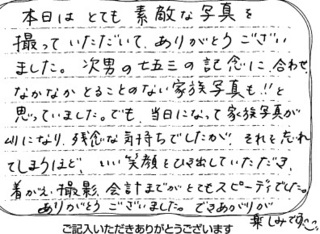 本日は とても 素敵な写真を
撮って いただいて、ありがとうござい
ました。次男の七五三の記念に合わせ、
なかなかとることのない家族写真も!!と
思っていました。でも、当日になって家族写真が
なり、残念な気持ちでしたが、それを忘れ
てしまうほど、いい笑顔をひき出していただき、
着がえ・撮影、会計までがとてもスピーディでした。
ありがとうございました。できあがりが
楽しみです
ご記入いただきありがとうございます